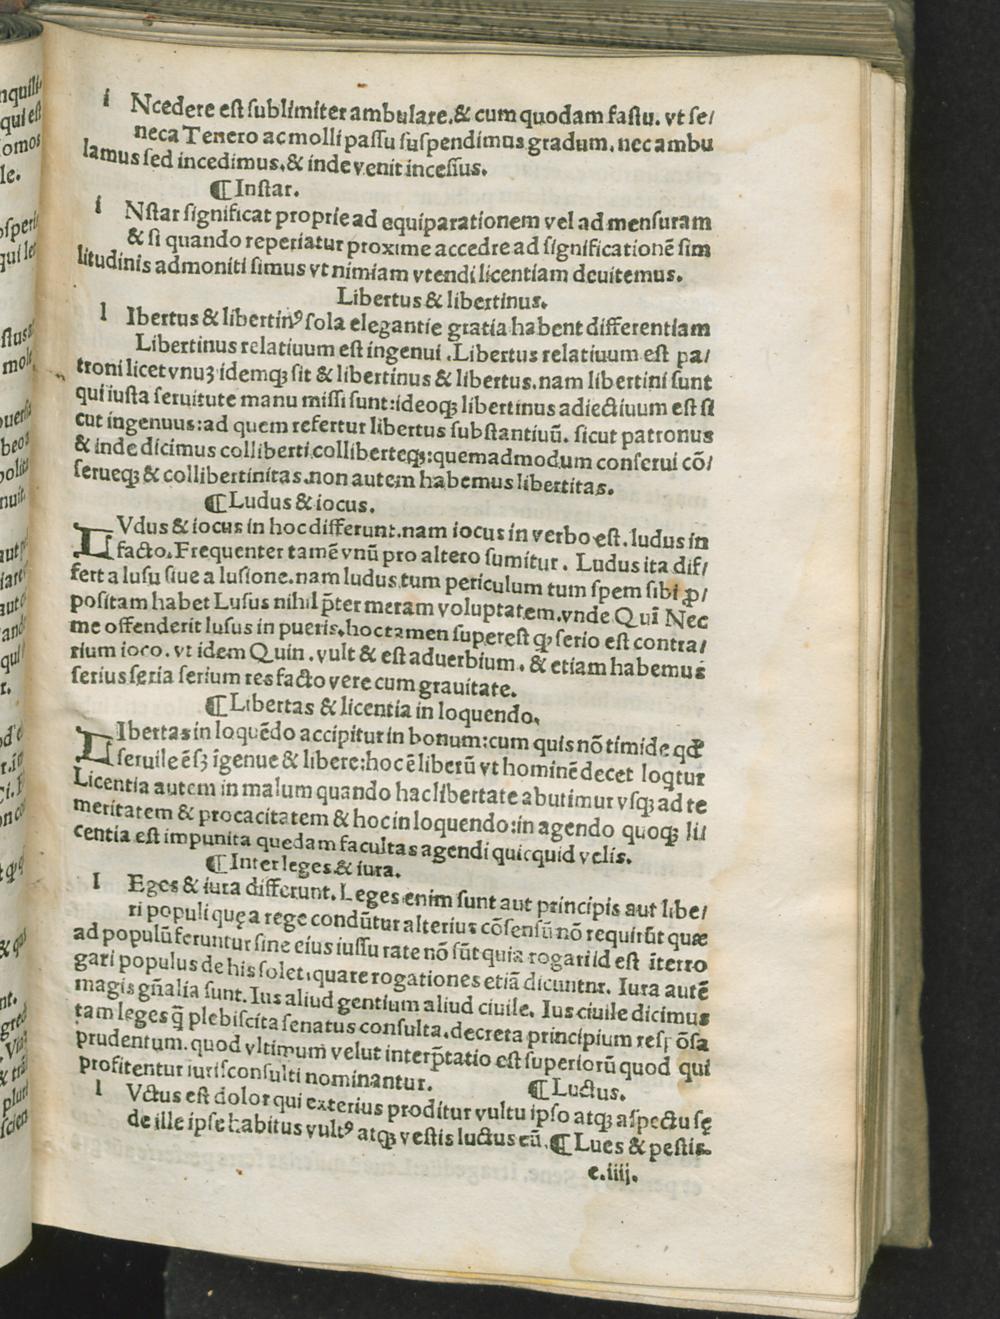 i Ncedere est sublimiter ambulare. & cum quodam fastu. vt se/
neca Tenero ac molli passu suspendimus gradum. nec ambu
lamus sed incedimus. & inde venit incessus.
¶ Instar.
i Nstar significat proprie ad equiparationem vel ad mensuram
& si quando reperiatur proxime accedre ad significationē sim
litudinis admoniti simus vt nimiam vtendi licentiam deuitemus.
Libertus & libertinus.
l Ibertus & libertinꝰ sola elegantie gratia habent differentiam
Libertinus relatiuum est ingenui . Libertus relatiuum est pa/
troni licet vnuꝫ idemqꝫ sit & libertinus & libertus. nam libertini sunt
qui iusta seruitute manu missi sunt: ideoqꝫ libertinus adiectiuum est si
cut ingenuus: ad quem refertur libertus substantiuū. sicut patronus
& inde dicimus colliberti colliberteqꝫ: quemadmodum conserui cō/
serueqꝫ & collibertinitas. non autem habemus libertitas.
¶ Ludus & iocus.
L Vdus & iocus in hoc differunt. nam iocus in verbo est. ludus in
facto. Frequenter tamē vnū pro altero sumitur . Ludus ita dif/
fert a lusu siue a lusione. nam ludus tum periculum tum spem sibi ꝓ/
positam habet Lusus nihil p̄ter meram voluptatem. vnde Quī Nec
me offenderit lusus in pueris. hoc tamen superest qꝫ serio est contra/
rium ioco. vt idem Quin . vult & est aduerbium . & etiam habemus
serius seria serium res facto vere cum grauitate.
¶ Libertas & licentia in loquendo.
L Ibertas in loquēdo accipitur in bonum: cum quis nō timide qď
seruile ē sꝫ īgenue & libere: hoc ē liberū vt hominē decet loqtur
Licentia autem in malum quando hac libertate abutimur vsqꝫ ad te
meritatem & procacitatem & hoc in loquendo: in agendo quoqꝫ li
centia est impunita quedam facultas agendi quicquid velis.
¶ Inter leges & iura.
l Eges & iura differunt. Leges enim sunt aut principis aut libe/
ri populi quę a rege condūtur alterius cōsensū nō requirūt quæ
ad populū feruntur sine eius iussu rate nō sūt quia rogari id est īterro
gari populus de his solet. quare rogationes etiā dicuntur. Iura autē
magis gn̄alia sunt. Ius aliud gentium aliud ciuile. Ius ciuile dicimus
tam leges q̄ plebiscita senatus consulta. decreta principium resp ōsa
prudentum. quod vltimum velut interp̄tatio est superiorū quod qui
profitentur iurisconsulti nominantur. ¶ Luctus.
l Vctus est dolor qui exterius proditur vultu ipso atqꝫ aspectu sę
de ille ipse habitus vultꝰ atqꝫ vestis luctus cū. ¶ Lues & pestis.
e.iiij.